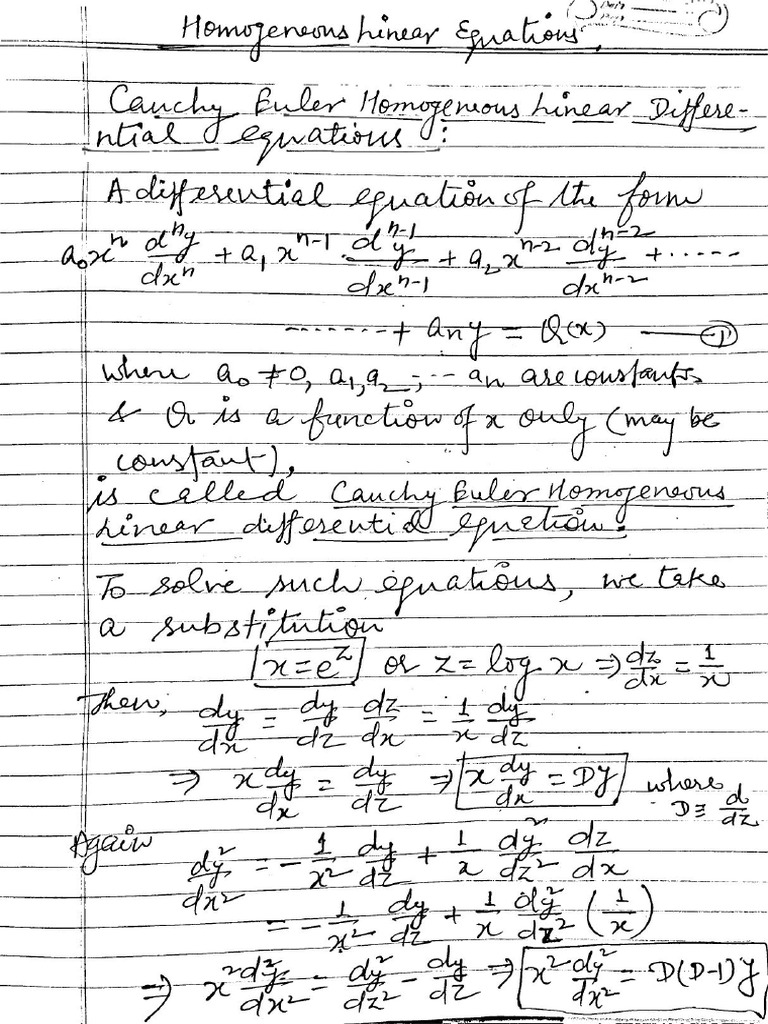 Homogeneous Linear Equations.
Cauchy Euler Homogeneous Linear Differe-
ntial equations :
A differential equation of the form
a₀xⁿ dⁿy/dxⁿ + a₁ xⁿ⁻¹ dⁿ⁻¹y/dxⁿ⁻¹ + a₂xⁿ⁻² dyⁿ⁻²/dxⁿ⁻² + ......
....... + any = Q(x) — ①
where a₀ ≠ 0, a₁, a₂, ... an are constants.
& Q is a function of x only (may be
constant),
is called Cauchy Euler Homogeneous
Linear differential equation.
To solve such equations, we take
a substitution
x = e^z or z = log x ⇒ dz/dx = 1/x
Then, dy/dx = dy/dz dz/dx = 1/x dy/dz
⇒ x dy/dx = dy/dz ⇒ x dy/dx = Dy where D ≡ d/dz
Again dy²/dx² = - 1/x² dy/dz + 1/x dy²/dz² dz/dx
= - 1/x² dy/dz + 1/x dy²/dz² (1/x)
⇒ x² d²y/dx² = dy²/dz² - dy/dz ⇒ x² dy²/dx² = D(D-1)y